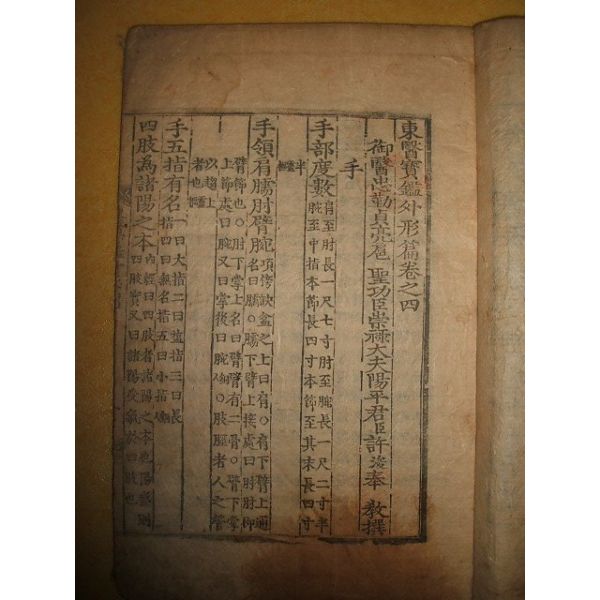 東醫寶鑑外形篇卷之四
御醫忠勤貞亮扈 聖功臣崇祿大夫陽平君臣許浚奉 教撰
手
手部度數肩至肘長一尺七寸肘至腕長一尺二寸半
腕至中指本節長四寸本節至其末長四寸
半靈樞
手領肩臑肘臂腕項傍缺盆之上曰肩○肩下臂上通
名曰臑○臑下臂上接處曰肘肘仰
臂節也○肘下掌上名曰臂臂有二骨○臂下掌
上節處曰腕又曰掌後曰腕○股脛者人之管
以趨
者也靈樞
手五指有名一曰大指二曰鹽指三曰長
指四曰無名指五曰小指
四肢爲諸陽之本內經曰四肢者諸陽之本也陽盛則
四肢實又曰諸陽受氣於四肢也